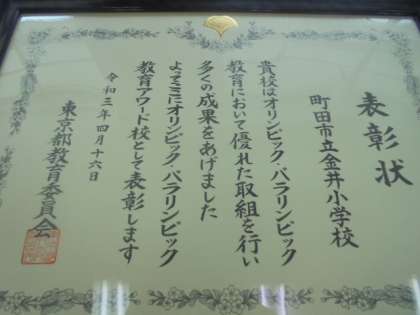 表彰状
町田市立金井小学校
貴校はオリンピック・パラリンピック
教育において優れた取組を行い
多くの成果をあげました
よってここにオリンピック・パラリンピック
教育アワード校として表彰します
令和三年四月十六日
東京都教育委員会